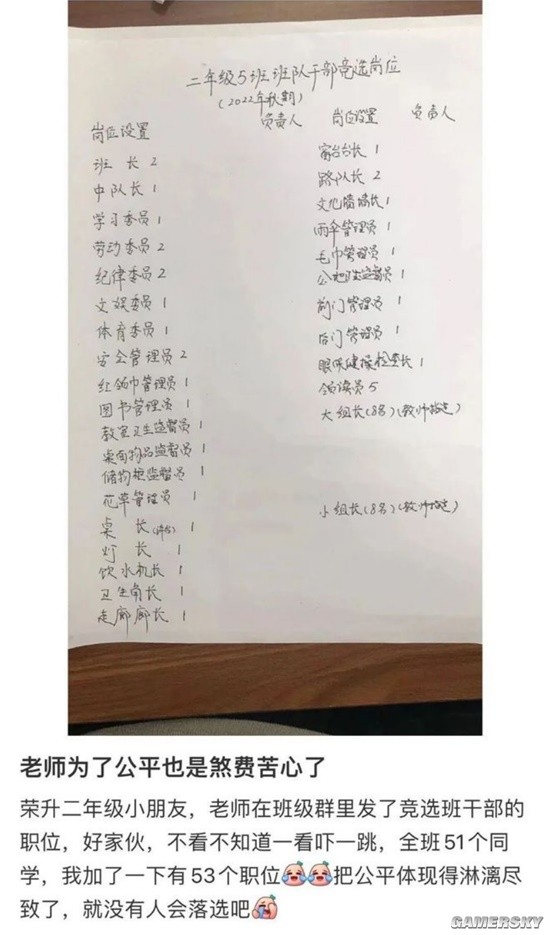 二年级5班班队干部竞选岗位
(2022年秋期)
岗位设置 负责人
班 长 2
中队长 1
学习委员 1
劳动委员 2
纪律委员 2
文娱委员 1
体育委员 1
安全管理员 2
红领巾管理员 1
图书管理员 1
教室卫生监督员 1
桌面物品监督员 1
储物柜监督员 1
花草管理员 1
桌 长 1
灯 长 1
饮水机长 1
卫生角长 1
走廊廊长 1
岗位设置 负责人
窗台台长 1
路队长 2
文化墙墙长 1
雨伞管理员 1
毛巾管理员 1
监督员 1
前门管理员 1
后门管理员 1
眼保健操检查长 1
领读员 5
大组长(8名)(教师指定)
小组长(8名)(教师指定)
老师为了公平也是煞费苦心了
荣升二年级小朋友，老师在班级群里发了竞选班干部的
职位，好家伙，不看不知道一看吓一跳，全班51个同
学，我加了一下有53个职位把公平体现得淋漓尽
致了，就没有人会落选吧
GAMERSKY